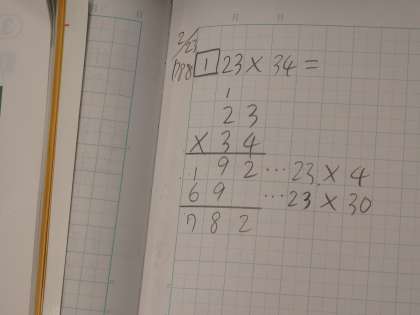 2/23
P88 1 23 × 34 =
1
23
× 34
192 ... 23 × 4
69 ... 23 × 30
782